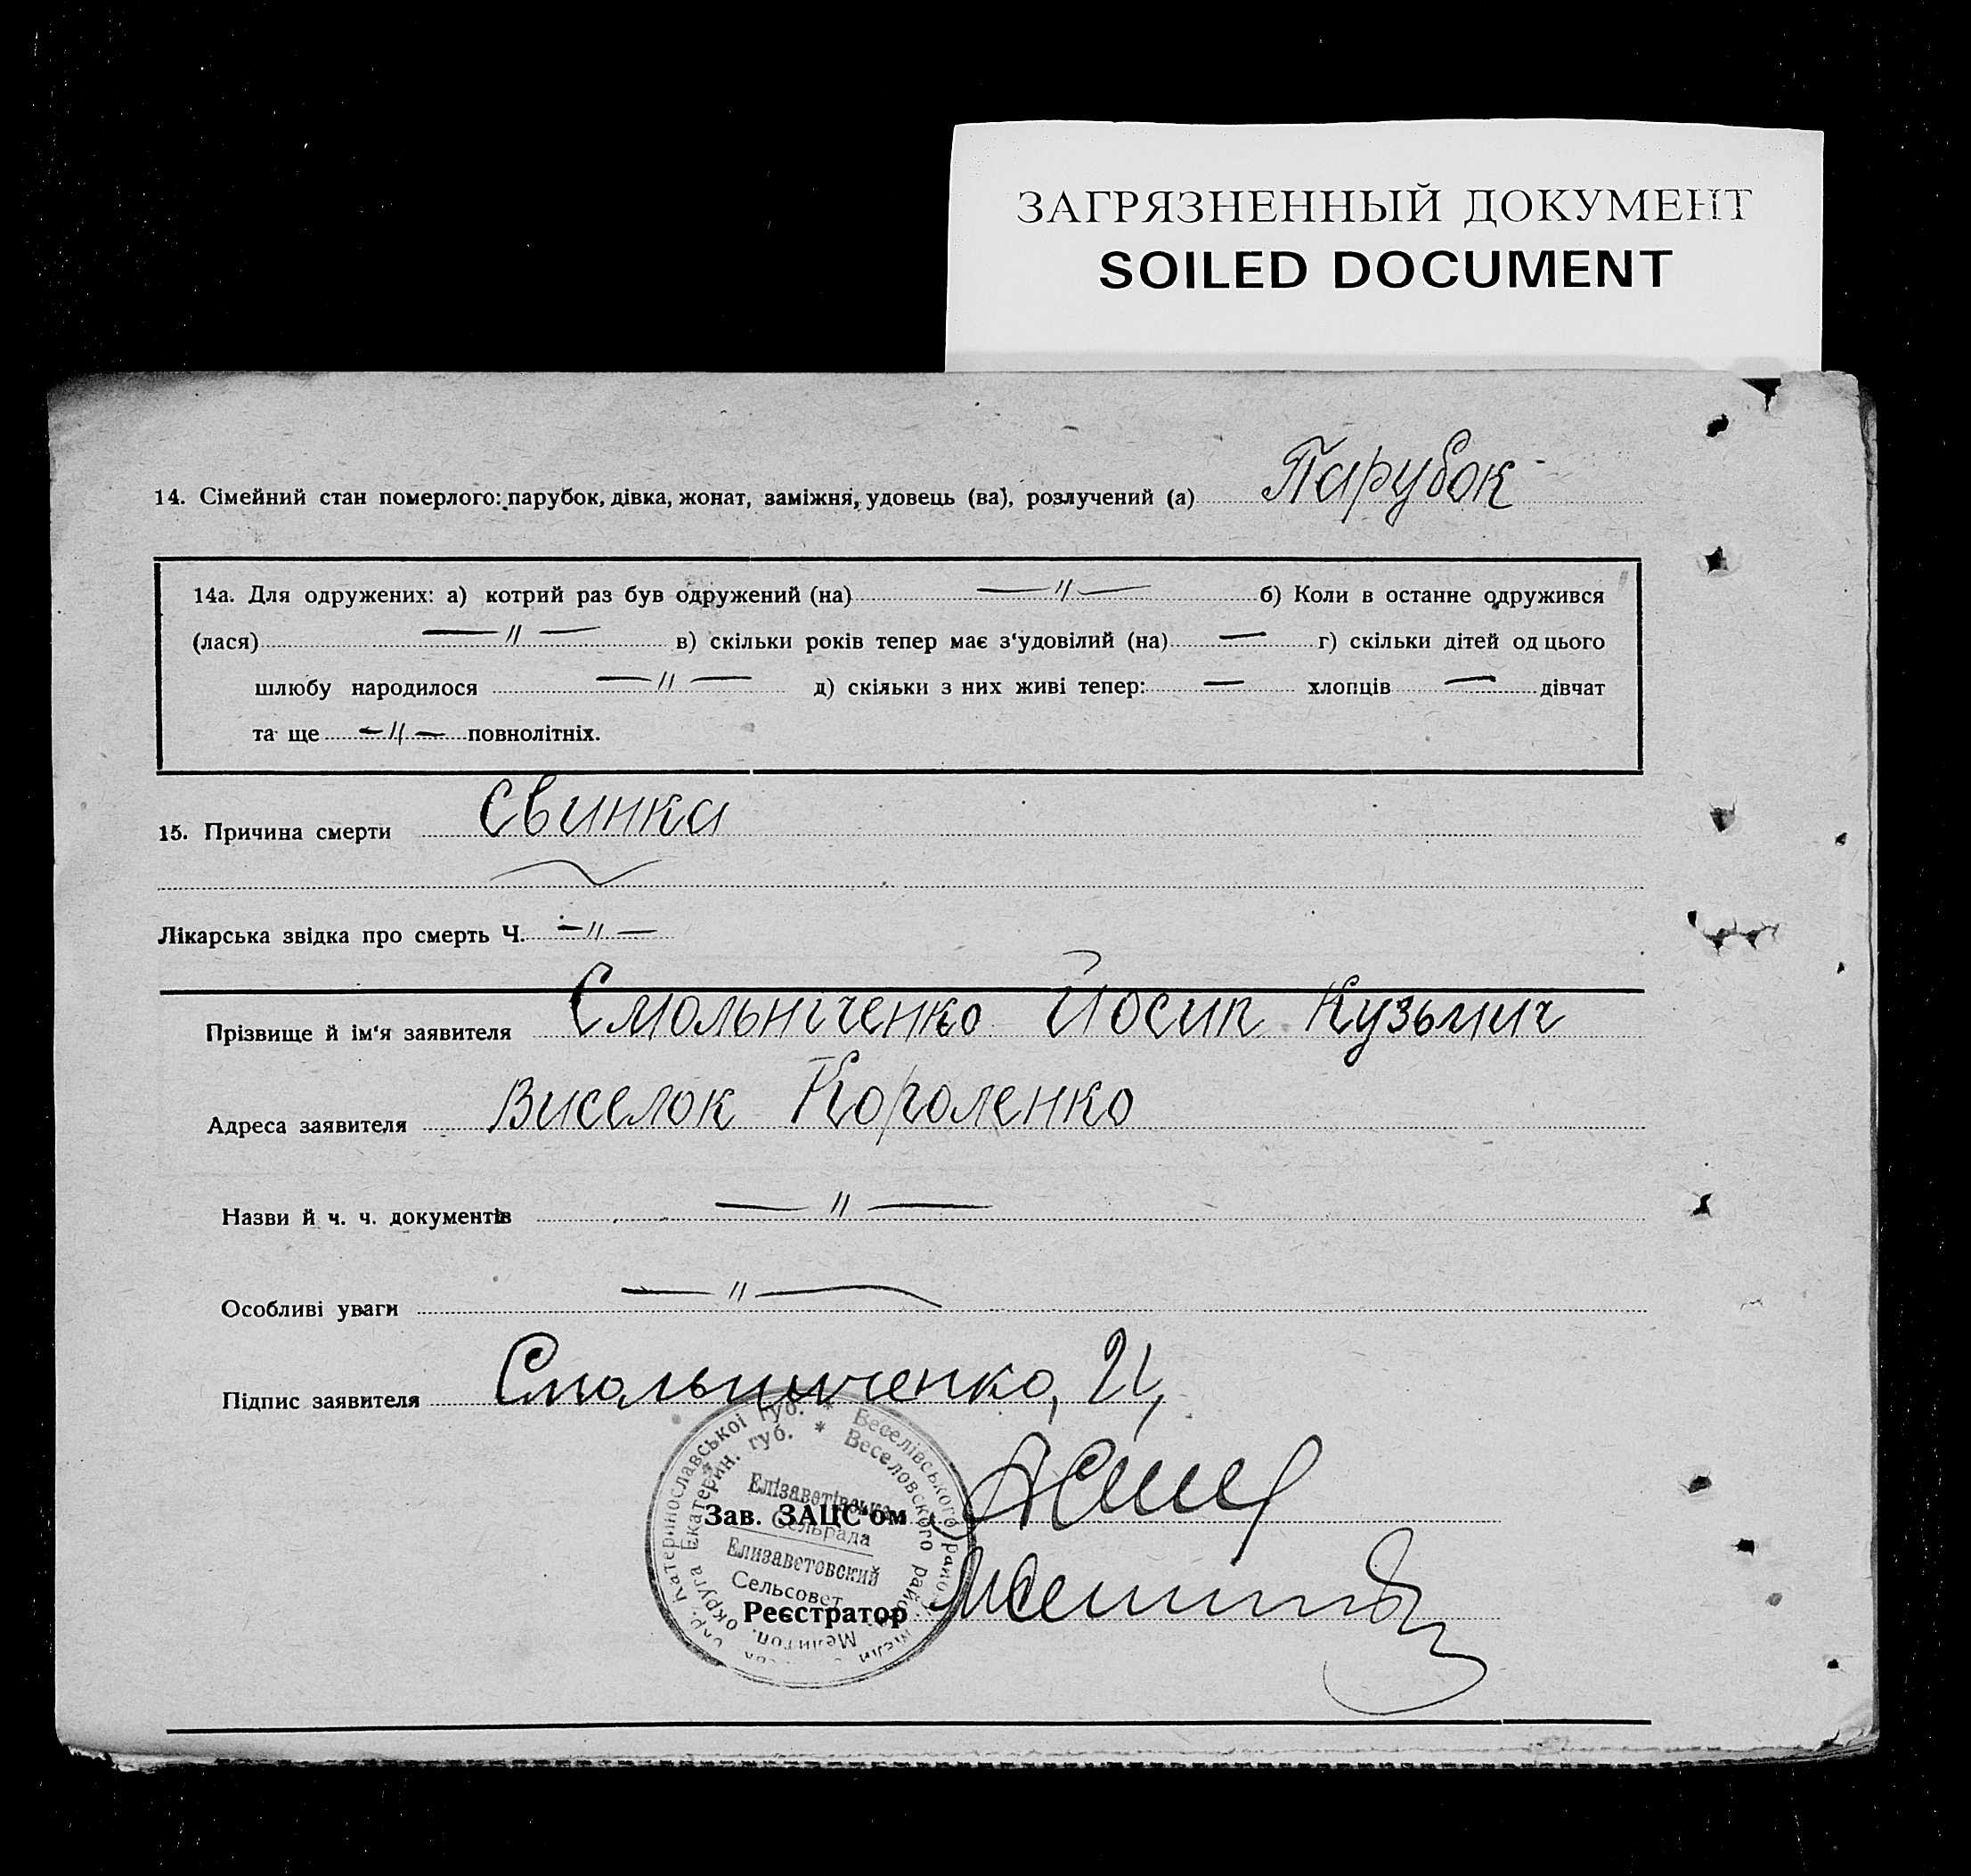 ЗАГРЯЗНЕННЫЙ ДОКУМЕНТ
SOILED DOCUMENT
14. Сімейний стан померлого: парубок, дівка, жонат, заміжня, удовець (ва), розлучений (а) Парубок
14а. Для одружених: а) котрий раз був одружений (на) —〃 — б) Коли в останне одружився
(лася) — 〃 — в) скільки років тепер має з‘удовілий (на) — г) скільки дітей од цього
шлюбу народилося — 〃 — д) скільки з них живі тепер: — хлопців — дівчат
та ще — 〃 — повнолітніх.
15. Причина смерти Свинка
Лікарська звідка про смерть Ч. — 〃 —
Прізвище й ім‘я заявителя Смольніченко Йосип Кузьмич
Адреса заявителя Виселок Короленко
Назви й ч. ч. документів — 〃 —
Особливі уваги — 〃 —
Підпис заявителя Смольниченко, И,
Катеринославської губ. * Веселівського район. Мели
Екатерин. губ. * Веселовского район. Мелитоп. округа
Елізаветівська
Сельрада
Елизаветовский
Сельсовет
Зав. ЗАЦС‘ом
Реєстратор